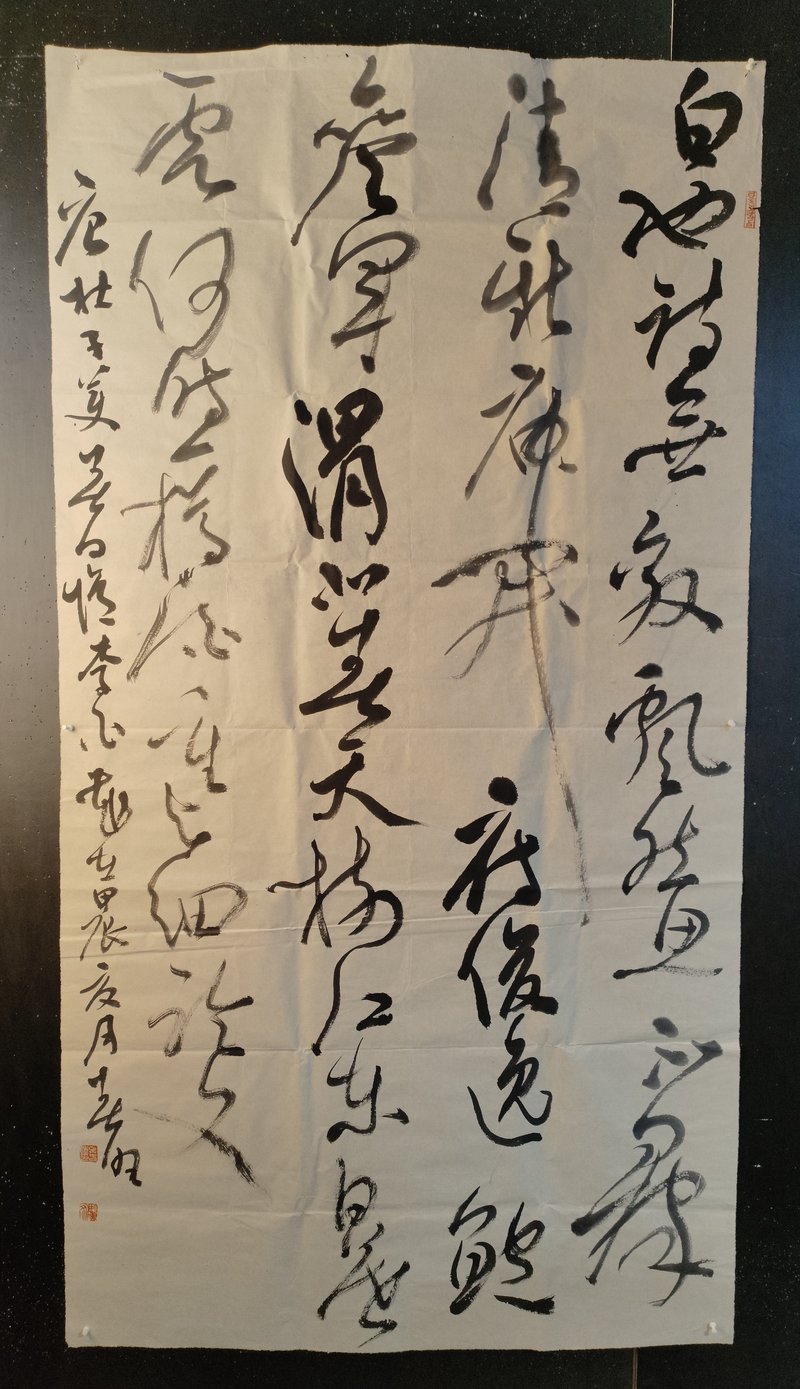 白也詩無敵飄然思不群
清新庾開府俊逸鮑
參軍渭北春天樹江東日暮
雲何時一樽酒重與細論文
唐杜子美春日憶李白歲在甲辰夏月